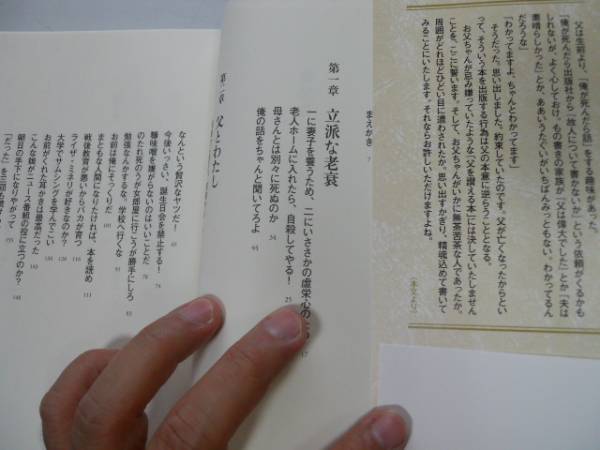 父は生前より、「俺が死んだら話」をする趣味があった。
「俺が死んだら出版社から〝故人について書かないか〟という依頼がくるかも
しれないが、よく心しておけ、もの書きの家族が『父は偉大でした』とか『夫は
素晴らしかった』とか、ああいうたぐいがいちばんみっともない。わかってるん
だろうな」
「わかってますよ、ちゃんとわかってます」
そうだった。思い出しました。約束していたのです。父が亡くなったからとい
って、そういう本を出版する行為は父の本意に逆らうこととなる。
お父ちゃんが忌み嫌っていたような〝父を讃える本〟には決していたしません
ことを、ここに誓います。そして、お父ちゃんがいかに無茶苦茶な人であったか。
周囲がどれほどひどい目に遭わされたか、思い出すかぎり、精魂込めて書いて
みることにいたします。それならお許しいただけますよね。
(本文より)
まえがき 7
第一章 立派な老衰
一に妻子を養うため、二にいささかの虚栄心の 17
老人ホームに入れたら、自殺してやる! 25
母さんとは別々に死ぬのか 34
俺の話をちゃんと聞いてろよ 45
父とわたし
なんという贅沢なヤツだ! 63
今後いっさい、誕生日会を禁止する!
糠味噌を嫌がらないのはいいことだ 74
のたれ死のうが女郎屋に行こうが勝手にしろ 78
勉強なんかするな、学校へ行くな 91
お前は俺にそっくりだ 101
まともな人間になりたければ、本を読め 111
戦後教育が悪いからバカが育つ
ライザ・ミネリが好きなのか? 126
大学でサムシングを学んでこい
お前がくれた耳かきは最高だった
こんな嫁がニュース番組の役に立つのか? 144
朝日の手下になりやがって
「だった」を三回